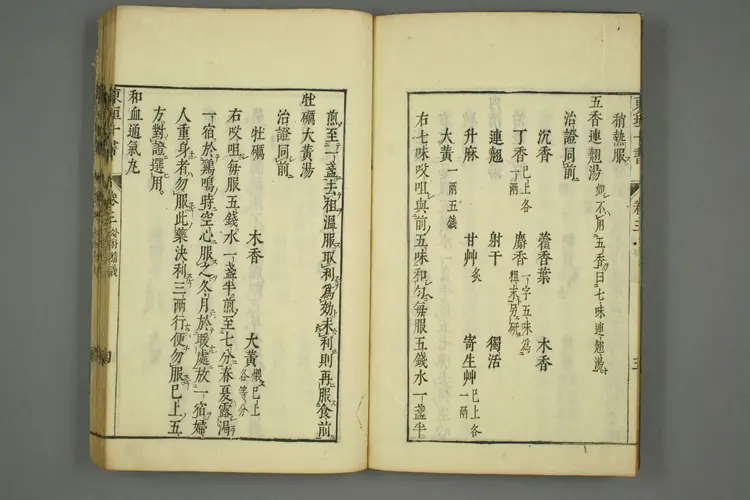 稍熱服
五香連翹湯 如不用五香曰七味連翹湯
治證同前
沉香 藿香葉 木香
丁香 已上各一兩 麝香 一字五味爲粗末另研
連翹 射干 獨活
升麻 甘艸 炙 寄生艸 已上各一兩
大黃 一兩五錢
右七味㕮咀與前五味和勻每服五錢水一盞半
煎至一盞去柤溫服取利爲効未利則再服食前
治證同前
牡礪大黃湯
牡礪 木香 大黃 煨已上各等分
右㕮咀每服五錢水一盞半煎至七分春夏露
一宿於鷄鳴時空心服之冬月於暖處放一宿婦
人重身者勿服此藥決利三兩行便勿服已上五
方對證選用
和血通氣丸
東垣十書
卷三